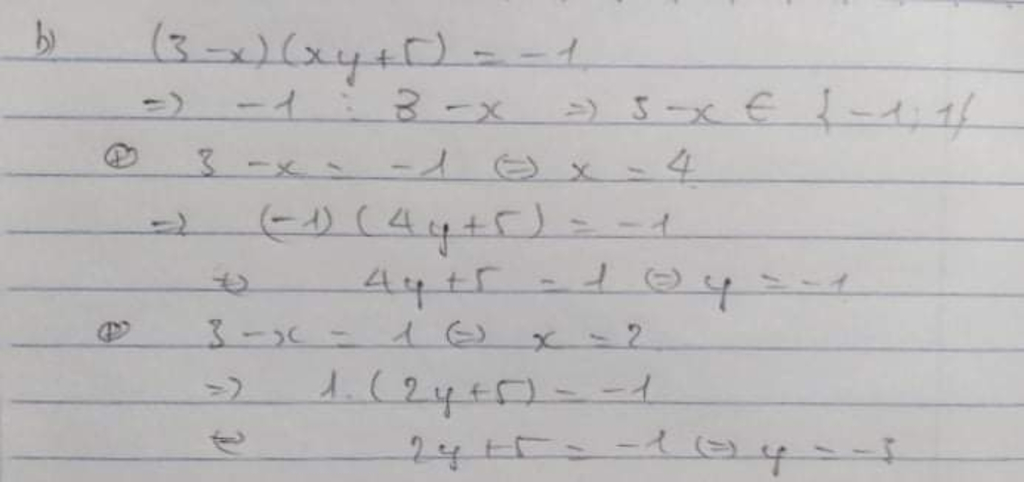 b) (3-x)(xy+5) = -1
=> -1 ⋮ 3-x => 3-x ∈ {-1; 1}
⊕ 3-x = -1 <=> x = 4
=> (-1)(4y+5) = -1
<=> 4y+5 = 1 <=> y = -1
⊕ 3-x = 1 <=> x = 2
=> 1.(2y+5) = -1
<=> 2y+5 = -1 <=> y = -3